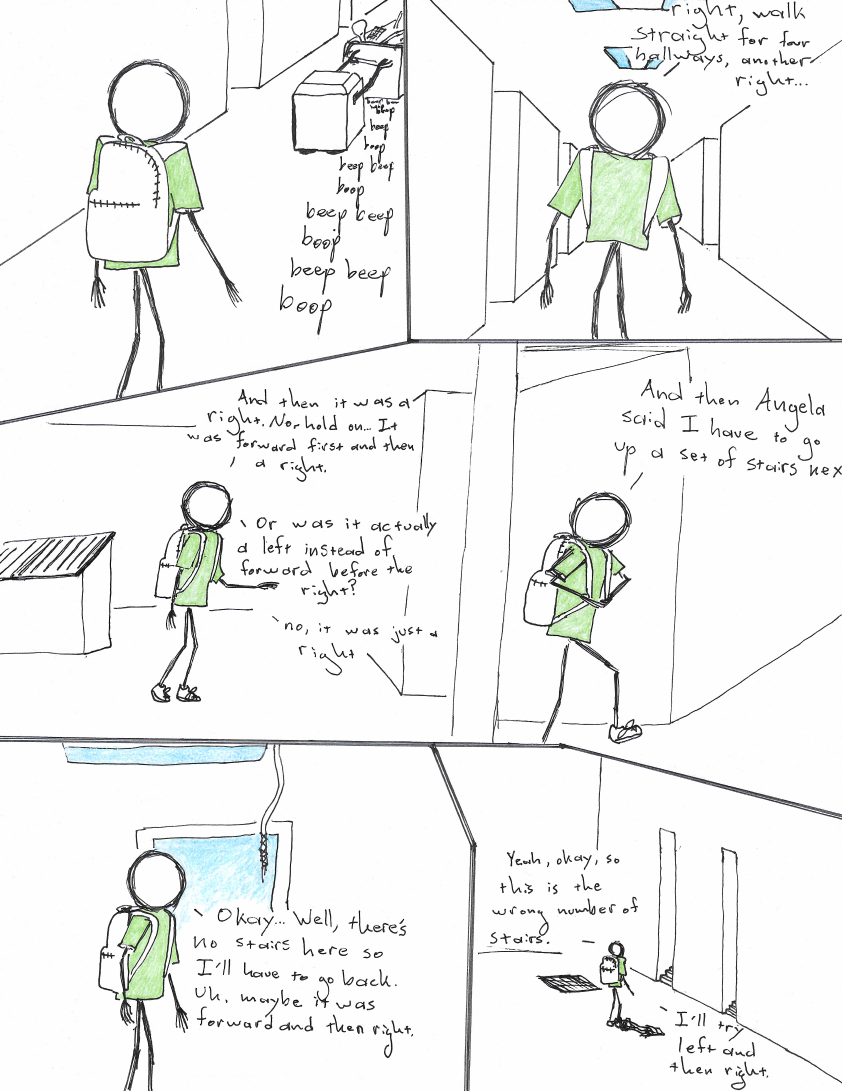 beep beep
boop
beep
boop
beep beep
boop
beep beep
boop
beep beep
boop
right, walk
straight for four
hallways, another
right...
And then it was a
right. No, hold on... It
was forward first and then
a right.
Or was it actually
a left instead of
forward before the
right?
no, it was just a
right
And then Angela
said I have to go
up a set of stairs nex
Okay... Well, there's
no stairs here so
I'll have to go back.
Uh, maybe it was
forward and then right.
Yeah, okay, so
this is the
wrong number of
stairs.
I'll try
left and
then right.